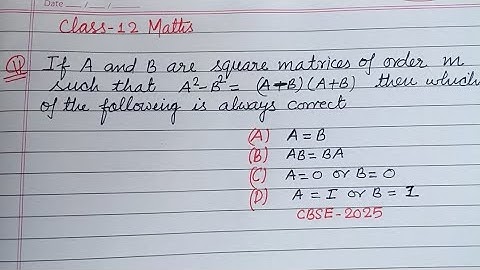 Date ___/___/___
Class-12 Maths
Q If A and B are square matrices of order m
such that A²-B² = (A-B)(A+B) then which
of the following is always correct
(A) A = B
(B) AB = BA
(C) A = 0 or B = 0
(D) A = I or B = I
CBSE-2025